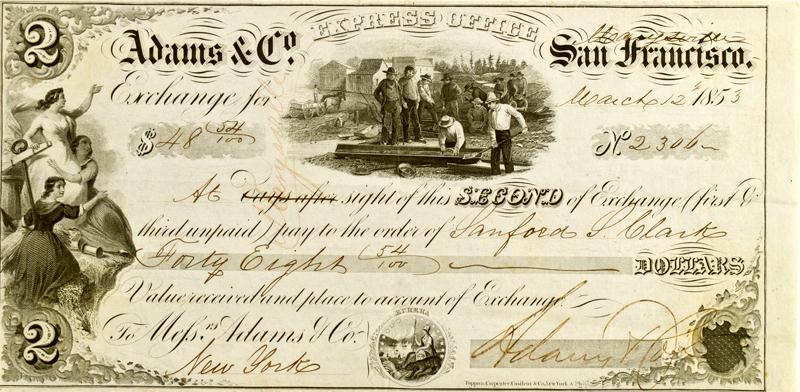 2
EXPRESS OFFICE
Adams & Co. San Francisco.
Exchange for March 12th 1853
$ 48 54/100 No 2306
At days after sight of this SECOND of Exchange (first &
third unpaid) pay to the order of Sanford S. Clark
Forty Eight 54/100 DOLLARS
Value received and place to account of Exchange
2
To Messrs Adams & Co. Adams & Co
New York
EUREKA
Toppan, Carpenter, Casilear & Co. New York & Phila